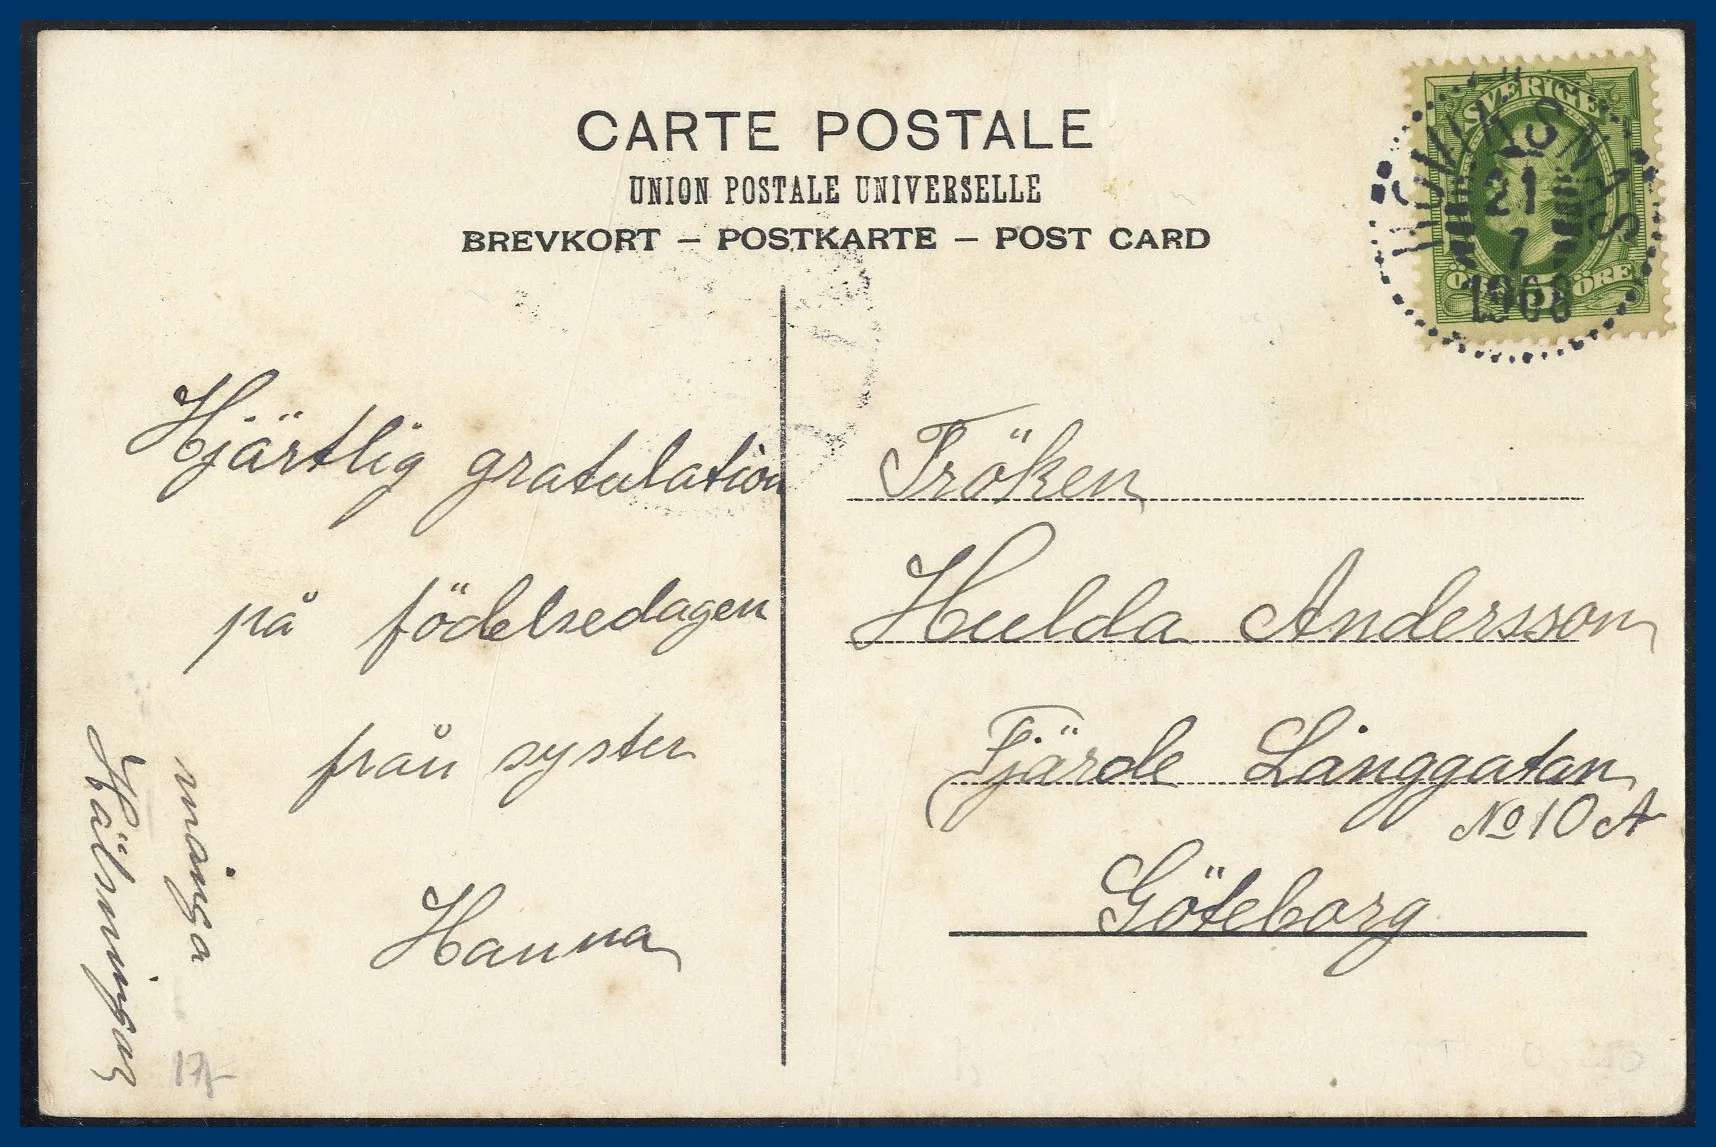 CARTE POSTALE
UNION POSTALE UNIVERSELLE
BREVKORT — POSTKARTE — POST CARD
SVERIGE
5 ÖRE
HOVIKSNÄS
21
7
1908
Hjärtlig gratulation
på födelsedagen
från syster
Hanna
många
Hälsningar
17-
Fröken
Hulda Andersson
Fjärde Långgatan
No 10 A
Göteborg